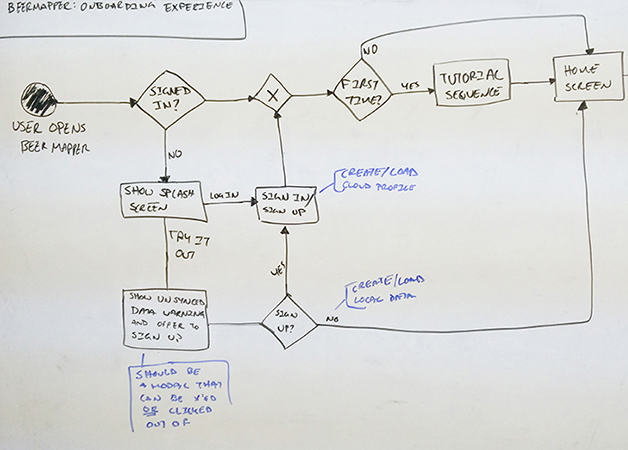 BEERMAPPER: ONBOARDING EXPERIENCE
NO
SIGNED
IN?
X
FIRST
TIME?
YES
TUTORIAL
SEQUENCE
HOME
SCREEN
USER OPENS
BEER MAPPER
NO
SHOW SPLASH
SCREEN
LOGIN
SIGN IN/
SIGN UP
CREATE/LOAD
CLOUD PROFILE
TRY IT
OUT
YES
SHOW UNSYNCED
DATA WARNING
AND OFFER TO
SIGN UP
SIGN
UP?
NO
CREATE/LOAD
LOCAL DATA
SHOULD BE
A MODAL THAT
CAN BE X'ED
OR CLICKED
OUT OF